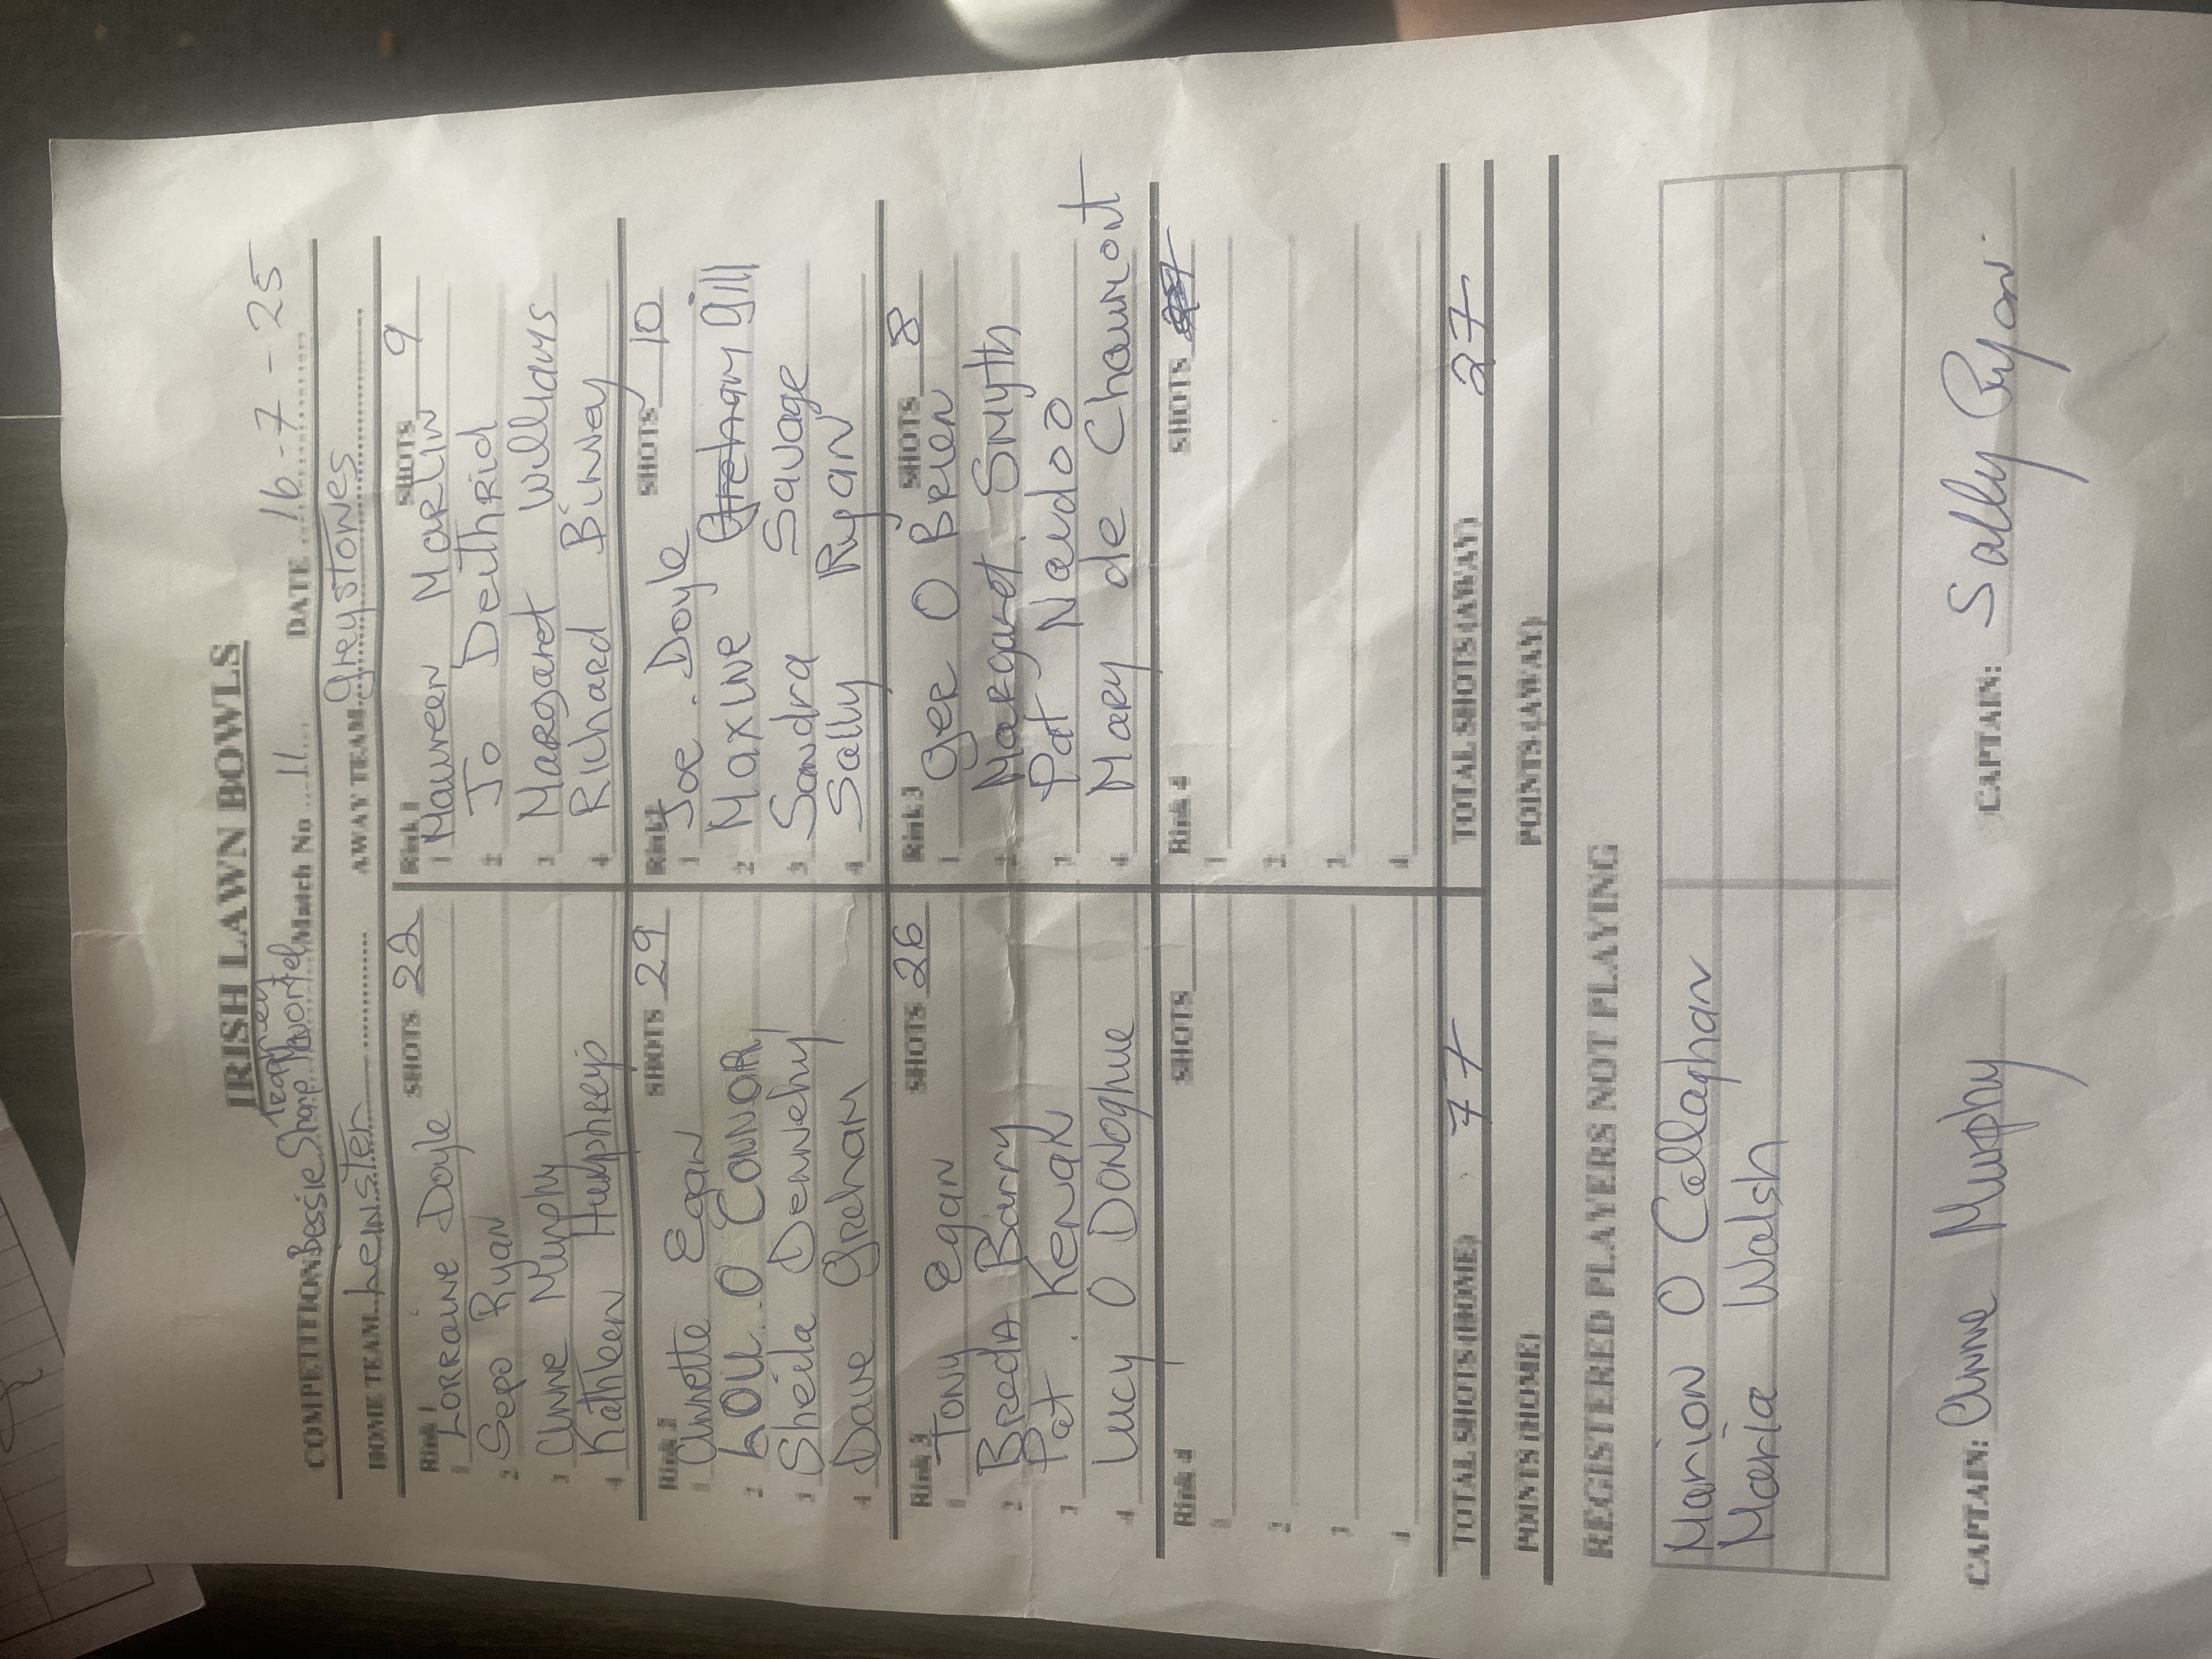 IRISH LAWN BOWLS
Trophey
COMPETITION: Bessie Sharpe Match No 11 DATE 16-7-25
HOME TEAM Leinster AWAY TEAM greystones
Rink 1 SHOTS 22
1 Lorraine Doyle
2 Sepo Ryan
3 Anne Murphy
4 Kathleen Humphreys
Rink 1 SHOTS 9
1 Maureen Marlin
2 Jo Deithrid
3 Margaret Williams
4 Richard Binney
Rink 2 SHOTS 29
1 Annette Egan
2 Lou O Connor
3 Sheila Dennehy
4 Dave Grehan
Rink 2 SHOTS 10
1 Joe Doyle
2 Maxine gill
3 Sandra Savage
4 Sally Ryan
Rink 3 SHOTS 26
1 Tony Egan
2 Breda Barry
3 Pat Kenak
4 Lucy O Donoghue
Rink 3 SHOTS 8
1 Ger O Brien
2 Margaret Smyth
3 Pat Naidoo
4 Mary de Chaumont
Rink 4 SHOTS
1
2
3
4
Rink 4 SHOTS
1
2
3
4
TOTAL SHOTS (HOME) 77 TOTAL SHOTS (AWAY) 27
POINTS (HOME) POINTS (AWAY)
REGISTERED PLAYERS NOT PLAYING
Marion O Callaghan
Maria Walsh
CAPTAIN: Anne Murphy CAPTAIN: Sally Ryan